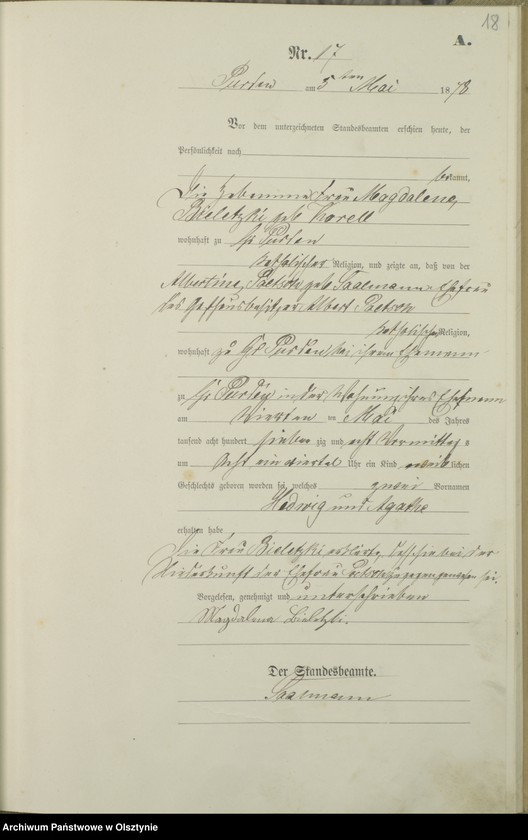 18
A.
Nr. 17
Purden am 5ten Mai 1878
Vor dem unterzeichneten Standesbeamten erschien heute, der
Persönlichkeit nach
bekannt,
Die Hebamme Frau Magdalena,
Bieletzki geb Korell
wohnhaft zu Gr Purden
katholischer Religion, und zeigte an, daß von der
Albertine geb Saalmann Ehefrau
des Albert
katholischer Religion,
wohnhaft zu Gr Purden bei ihrem Ehemann
zu Gr Purden in der Wohnung ihres Ehemann
am Vierten ten Mai des Jahres
tausend acht hundert sieben zig und acht Vormittag s
um Acht ein viertel Uhr ein Kind weiblichen
Geschlechts geboren worden sei, welches zwei Vornamen
Hedwig und Agathe
erhalten habe
Die Frau Bieletzki erklärt, daß sie bei der
Niederkunft der Ehefrau zugegen gewesen sei.
Vorgelesen, genehmigt und unterschrieben
Magdalena Bieletzki.
Der Standesbeamte.
Saalmann
Archiwum Państwowe w Olsztynie